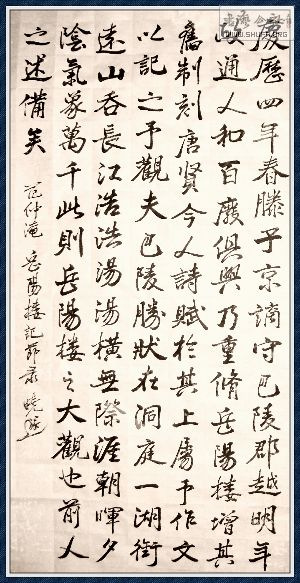 慶歷四年春滕子京謫守巴陵郡越明年
政通人和百廢俱興乃重脩岳陽樓增其
舊制刻唐賢今人詩賦於其上屬予作文
以記之予觀夫巴陵勝狀在洞庭一湖銜
遠山吞長江浩浩湯湯橫無際涯朝暉夕
陰氣象萬千此則岳陽樓之大觀也前人
之述備矣
范仲淹 岳陽樓記節录